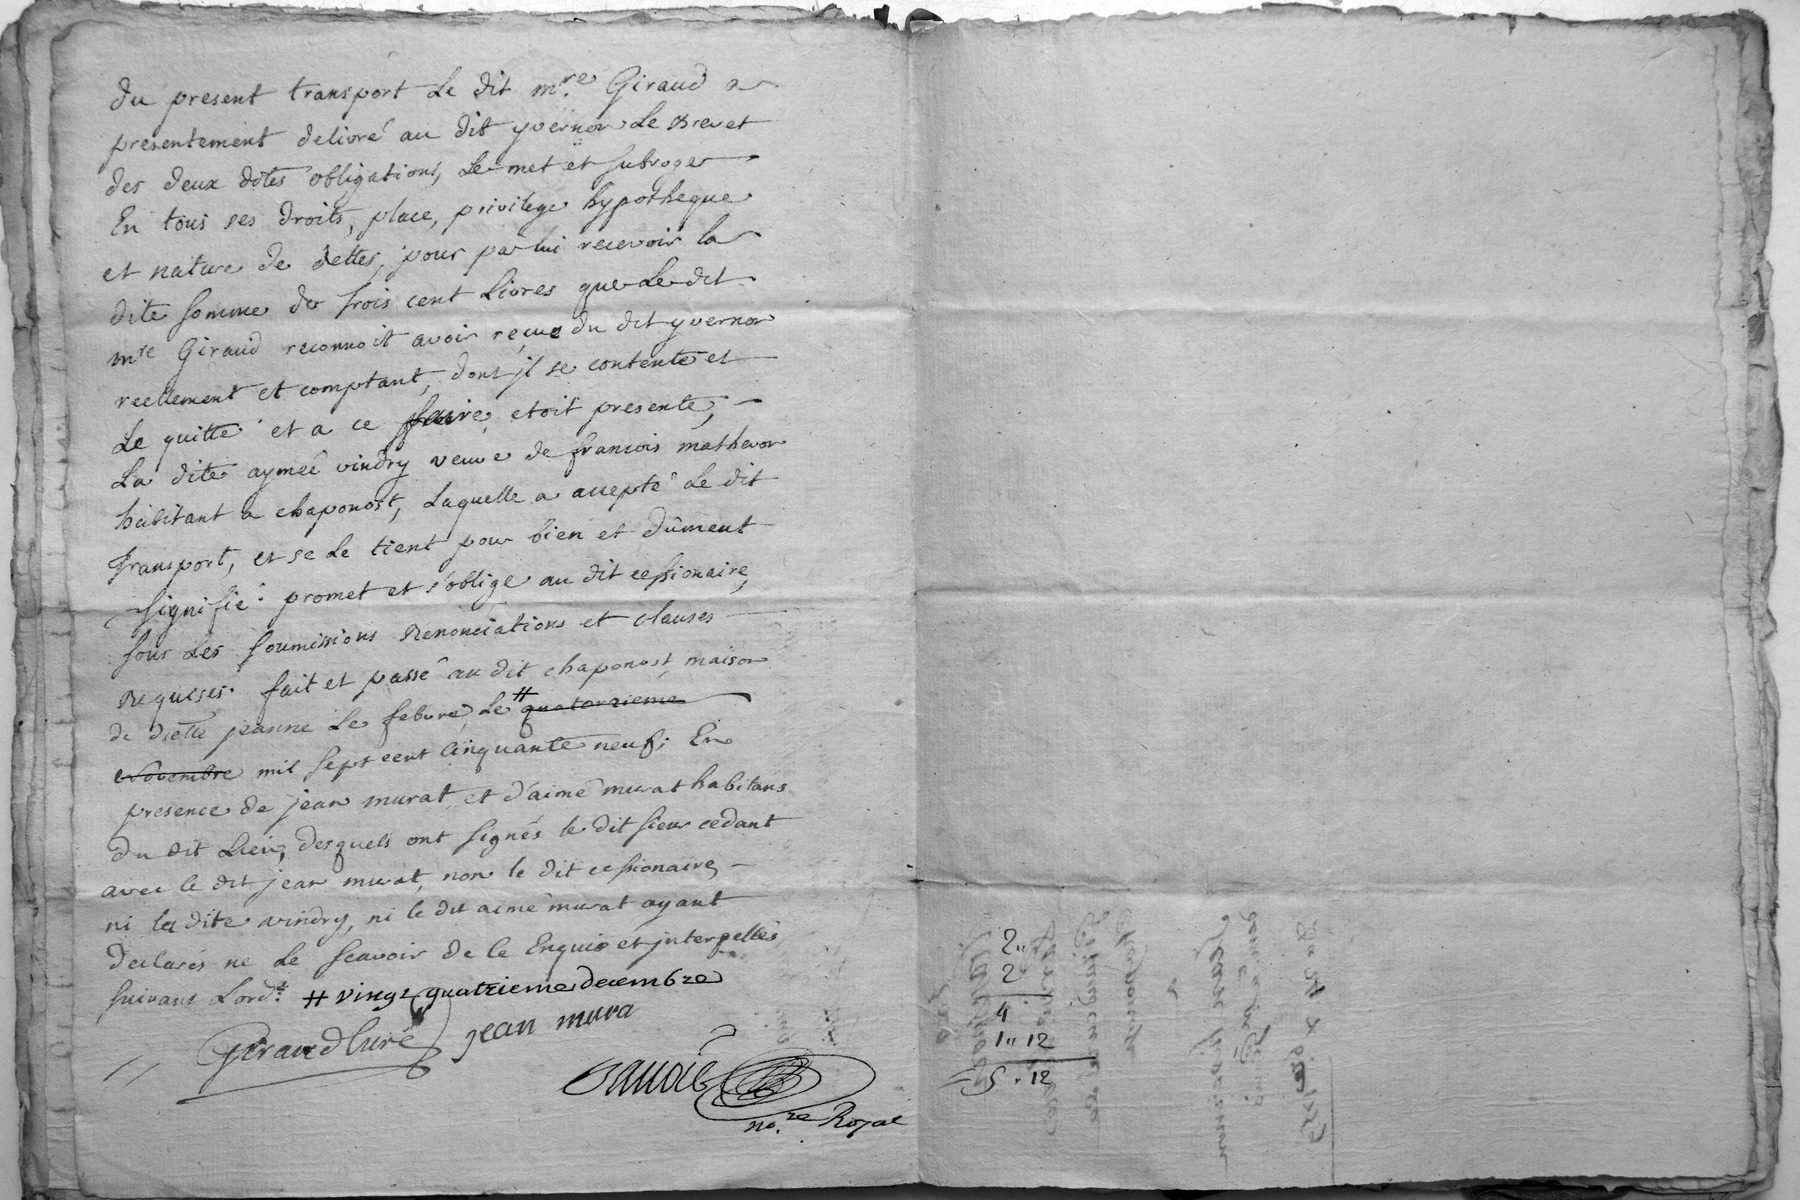 du present transport Le dit mre Giraud a
presentement delivré au dit yvernon Le Brevet
des deux dites obligations, Le met et subroge
En tous ses droits, place, privilege hypotheque
et nature de dettes, pour par lui recevoir la
dite somme de trois cent Livres que Le dit
mre Giraud reconnoit avoir reçue du dit yvernon
reellement et comptant, dont jl se contente et
Le quitte et a ce faire, etoit presente,
La dite aymeé vindry veuve de francois mathevon
habitant a chaponost, Laquelle a accepté Le dit
Transport, et se Le tient pour bien et dûment
signifié promet et s'oblige au dit cessionaire,
sous Les soumissions Renonciations et clauses
Requises. fait et passé au dit chaponost, maison
de dlle jeanne Le febure, Le # quatorzieme
Novembre mil sept cent Cinquante neuf; En
presence de jean murat et d'aimé murat habitans
du dit Lieu, desquels ont signés le dit sieur cedant
avec le dit jean murat, non le dit cessionaire,
ni la dite vindry, ni le dit aimé murat ayant
declarés ne Le scavoir de ce Enquis et jnterpellés
suivant Lord.e # vingt quatrieme decembre
Giraud Curé jean mura
no.re Royal
2 ,,
2
4
1 ,, 12
5 . 12